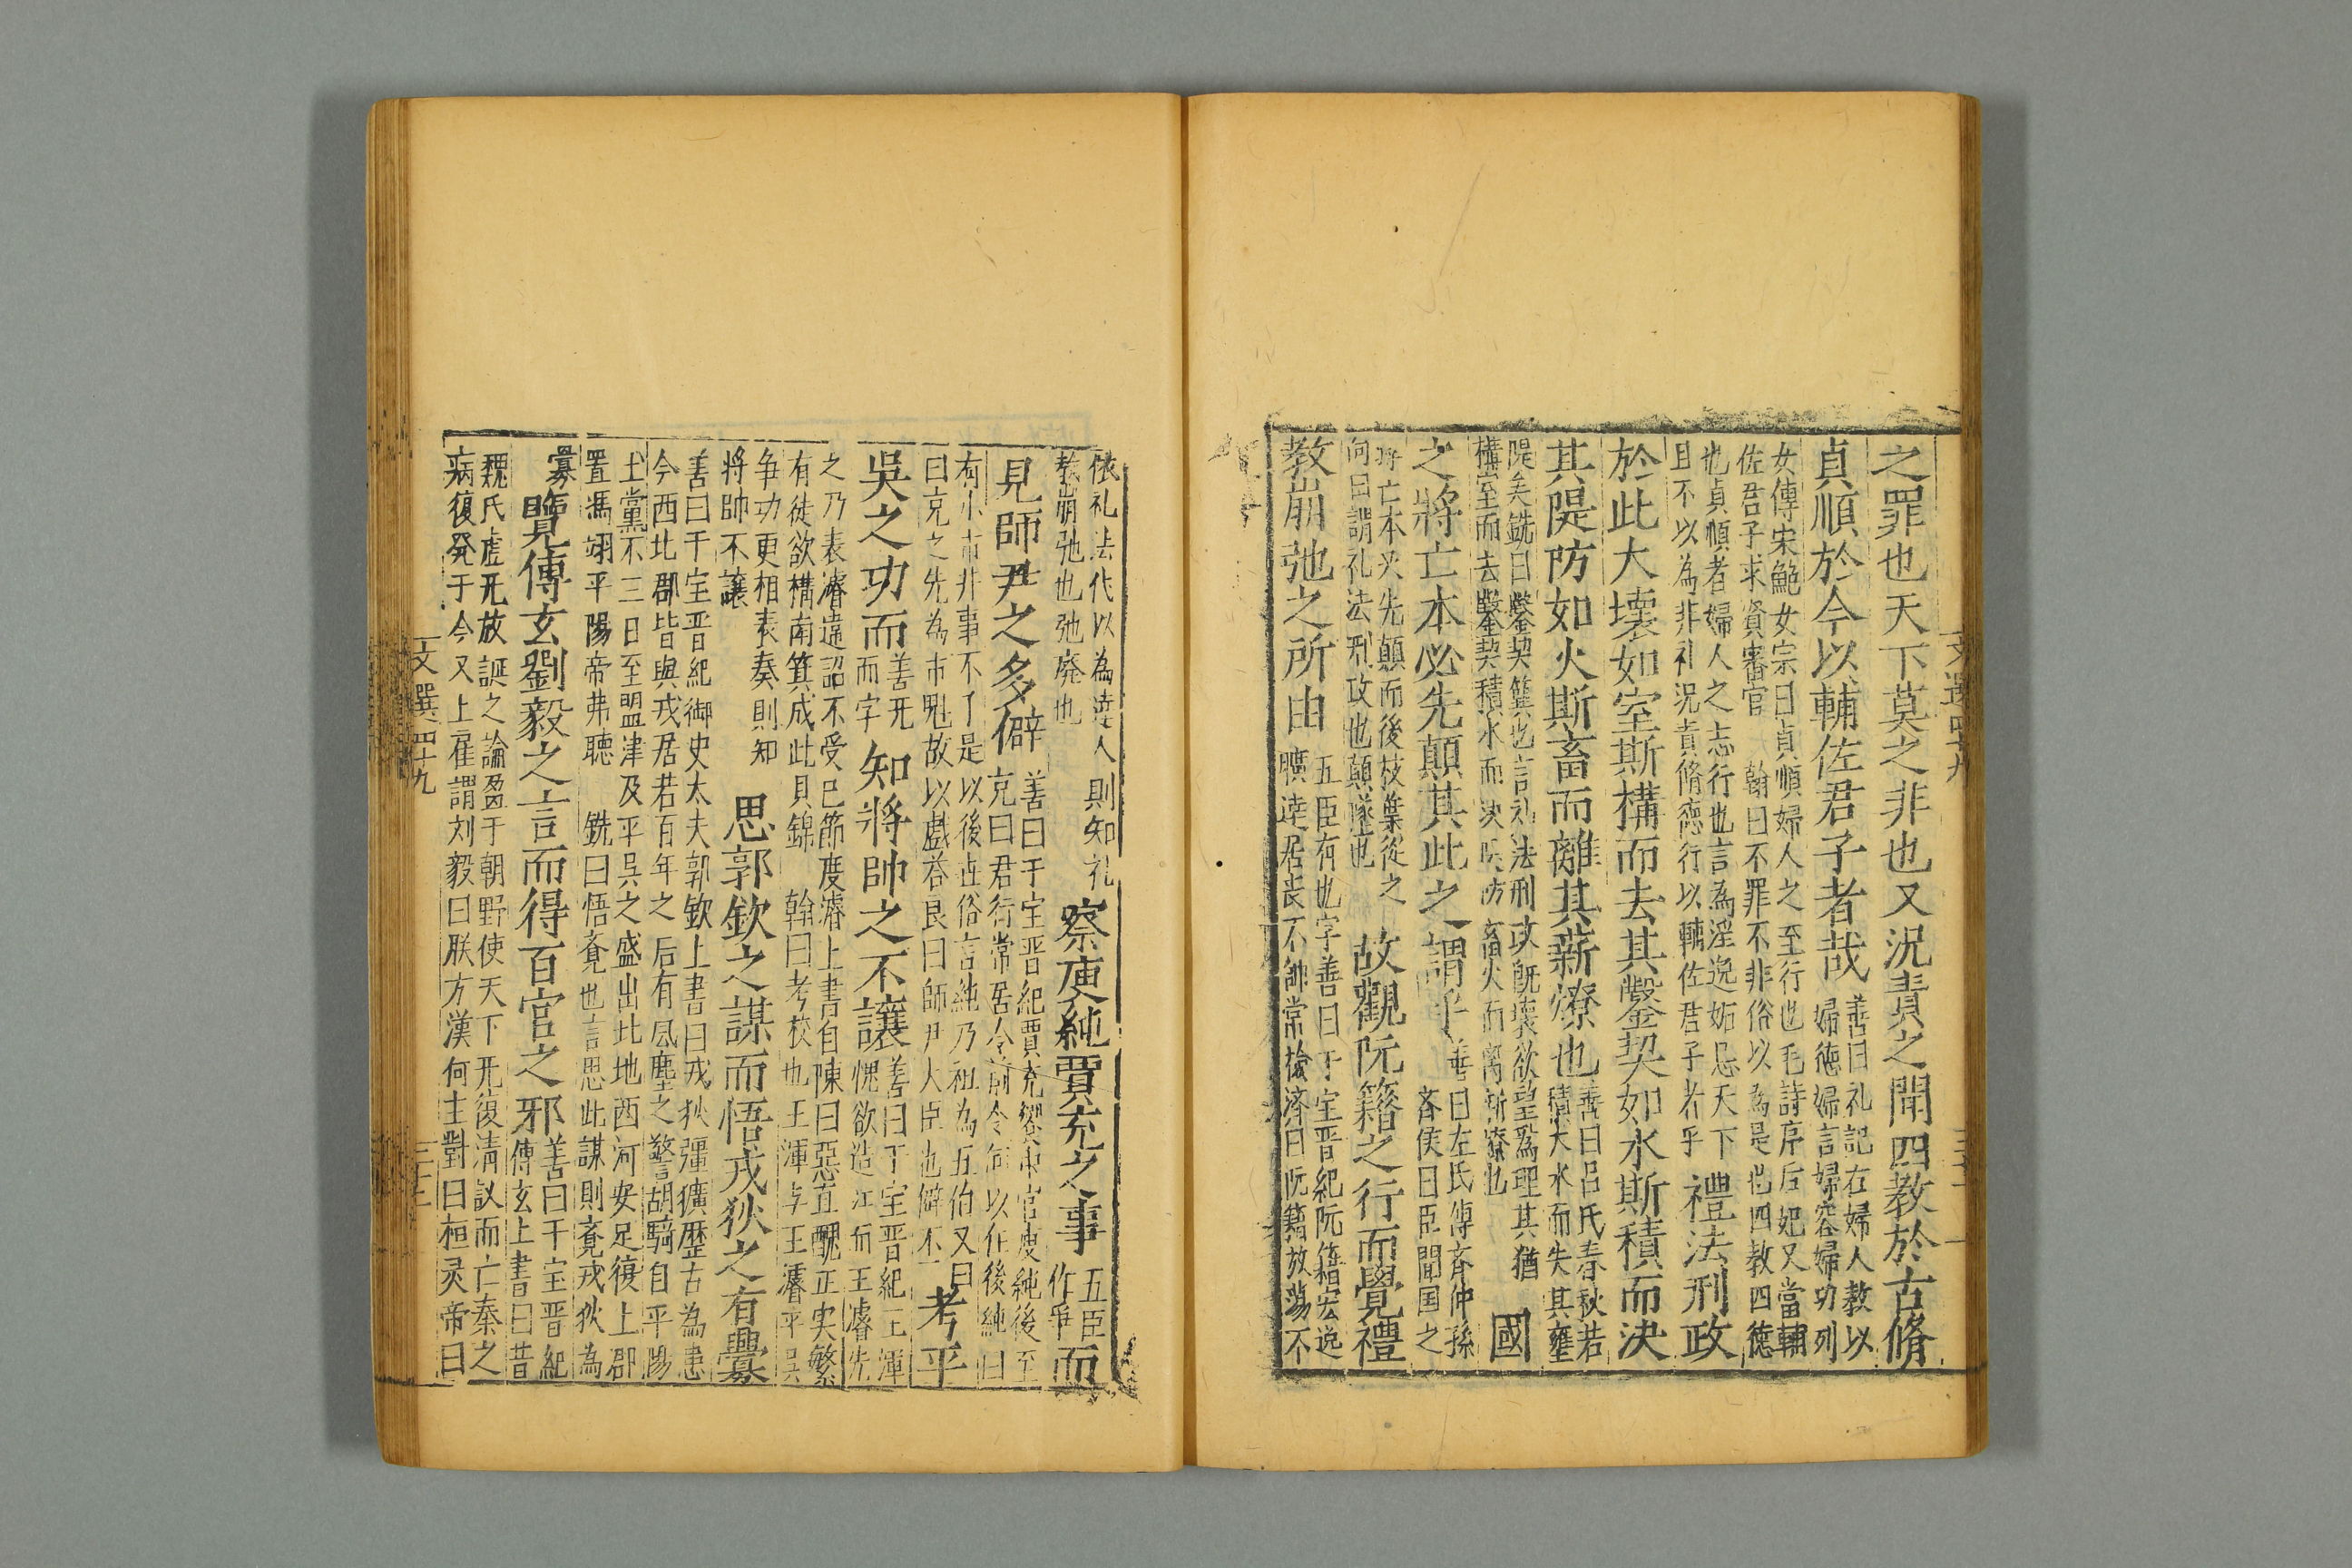 之罪也天下莫之非也又況責之聞四教於古脩
貞順於今以輔佐君子者哉善曰礼記右婦人教以
婦徳婦言婦容婦功列
女傳宋鮑女宗曰貞順婦人之至行也毛詩序后妃又當輔
佐君子求賢審官 翰曰不罪不非俗以為是也四教四徳
也貞順者婦人之志行也言為淫逸妬忌天下
且不以為非礼況責脩徳行以輔佐君子者乎
禮法刑政
於此大壊如室斯構而去其鑿契如水斯積而決
其隄防如火斯畜而離其薪燎也善曰呂氏春秋若
積大水而失其壅
隄矣銑曰鑿契簨也言礼法刑政既壊欲望為理其猶
構室而去鑿契積水而決隄防畜火而离薪燎也
國
之將亡本必先顛其此之謂乎善曰左氏傳斉仲孫
斉侯曰臣聞国之
将亡本必先顛而後枝葉從之
向曰謂礼法刑政也顛墜也
故觀阮籍之行而覺禮
教崩弛之所由五臣有也字善曰于宝晋紀阮籍宏逸
曠逹居丧不帥常撿済曰阮籍放蕩不
文選四十九
依礼法代以為逹人則知礼
教崩弛也弛廃也
察庾純賈充之事五臣
作爭
而
見師尹之多僻善曰于宝晋紀賈充饗衆官庾純後至
充曰君行常居人前今何以在後純曰
有小市井事不了是以後世俗言純乃祖為五伯又曰
曰充之先為市魁故以戯荅艮曰師尹大臣也僻不一
考平
吳之功而善无
而字
知將帥之不讓善曰于宝晋紀王渾
愧欲造江而王濬先
之乃表濬違詔不受已節度濬上書自陳曰惡直醜正实繁
有徒欲構南箕成此貝錦 翰曰考校也王渾与王濬平吳
争功更相表奏則知
将帥不譲
思郭欽之謀而悟戎狄之有釁
善曰干宝晋紀御史太夫郭欽上書曰戎狄彊獷歴古為患
今西北郡皆與戎居若百年之后有风塵之警胡騎自平陽
土黨不三日至盟津及平吳之盛出北地西河安足復上郡
置馮翊平陽帝弗聴 銑曰悟覔也言思此謀則覔戎狄為
釁
覽傳玄劉毅之言而得百官之邪善曰干宝晋紀
傳玄上書曰昔
魏氏虚无放誕之論盈于朝野使天下无復淸议而亡秦之
病復発于今又上雇謂刘毅曰朕方漢何主對曰桓灵帝曰
文選四十九